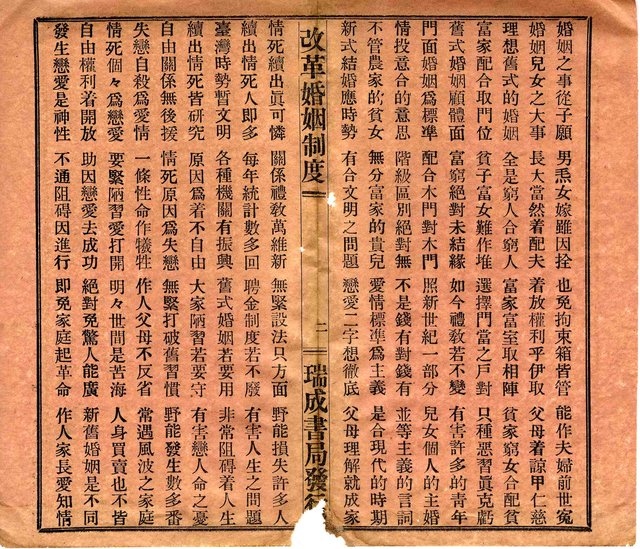 婚姻之事從子願 男𤆬女嫁雖因拴 也免拘束箱皆管 能作夫婦前世冤
婚姻兒女之大事 長大當然着配夫 着放權利乎伊取 父母着諒甲仁慈
理想舊式的婚姻 全是窮人合窮人 富家富室取相陣 貧家窮女合配貧
富家配合取門位 貧子富女難作堆 選擇門當之戶對 只種惡習眞克虧
舊式婚姻顧體面 富窮絕對未結緣 如今禮敎若不變 有害許多的青年
門面婚姻爲標準 配合木門對木門 照新世紀一部分 兒女個人的主婚
情投意合的意思 階級區別絕對無 不是錢有對錢有 並等主義的言詞
不管農家的貧女 無分富家的貴兒 愛情標準爲主義 是合現代的時期
新式結婚應時勢 有合文明之問題 戀愛二字想徹底 父母理解就成家
改革婚姻制度 二 瑞成書局發行
情死續出眞可憐 關係禮敎萬維新 無緊設法只方面 野能損失許多人
續出情死人即多 每年統計數多回 聘金制度若不廢 有害人生之問題
臺灣時勢暫文明 各種機關有振興 舊式婚姻若要用 非常阻碍着人生
續出情死皆研究 原因爲着不自由 大家陋習若要守 有害戀人命之憂
自由關係無後援 情死原因爲失戀 無緊打破舊習慣 野能發生數多番
失戀自殺爲愛情 一條性命作犧牲 作人父母不反省 常遇風波之家庭
情死個々爲戀愛 要緊陋習愛打開 明々世間是苦海 人身買賣也不皆
自由權利着開放 助因戀愛去成功 絕對免驚人能廣 新舊婚姻是不同
發生戀愛是神性 不通阻碍因進行 即免家庭起革命 作人家長愛知情